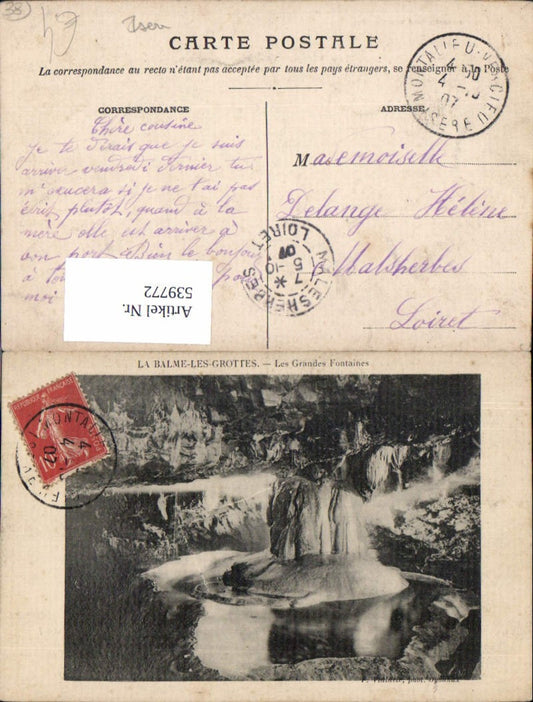 38
Isere
CARTE POSTALE
La correspondance au recto n'étant pas acceptée par tous les pays étrangers, se renseigner à la Poste
MONTALIEU-VERCIEU
4-10
07
ISERE
CORRESPONDANCE
ADRESSE
Chère cousine
Je te dirais que je suis
arriver vendredi dernier tu
si je ne t'ai pas
écrit plutôt, quand à la
mère elle est arriver à
bon port Bien le bonjour
à
moi
Mademoiselle
Delange Hélène
à Malsherbes
Loiret
MALESHERBES
LOIRET
7
5-10
07
Artikel Nr.
539772
LA BALME-LES-GROTTES. — Les Grandes Fontaines
REPUBLIQUE FRANÇAISE
10
4
07
phot.